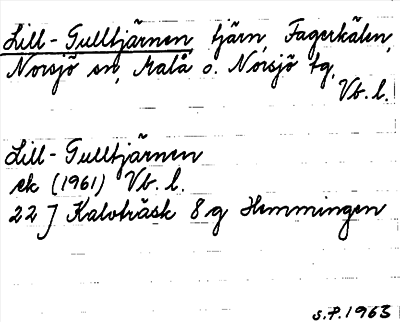 Lill-Gulltjärnen tjärn, Fagerkälen,
Norsjö sn, Malå o. Norsjö tg,
Vb. l.
Lill-Gulltjärnen
ek (1961) Vb. l.
22 J Kalvträsk 8 g Hemmingen
S.P. 1963